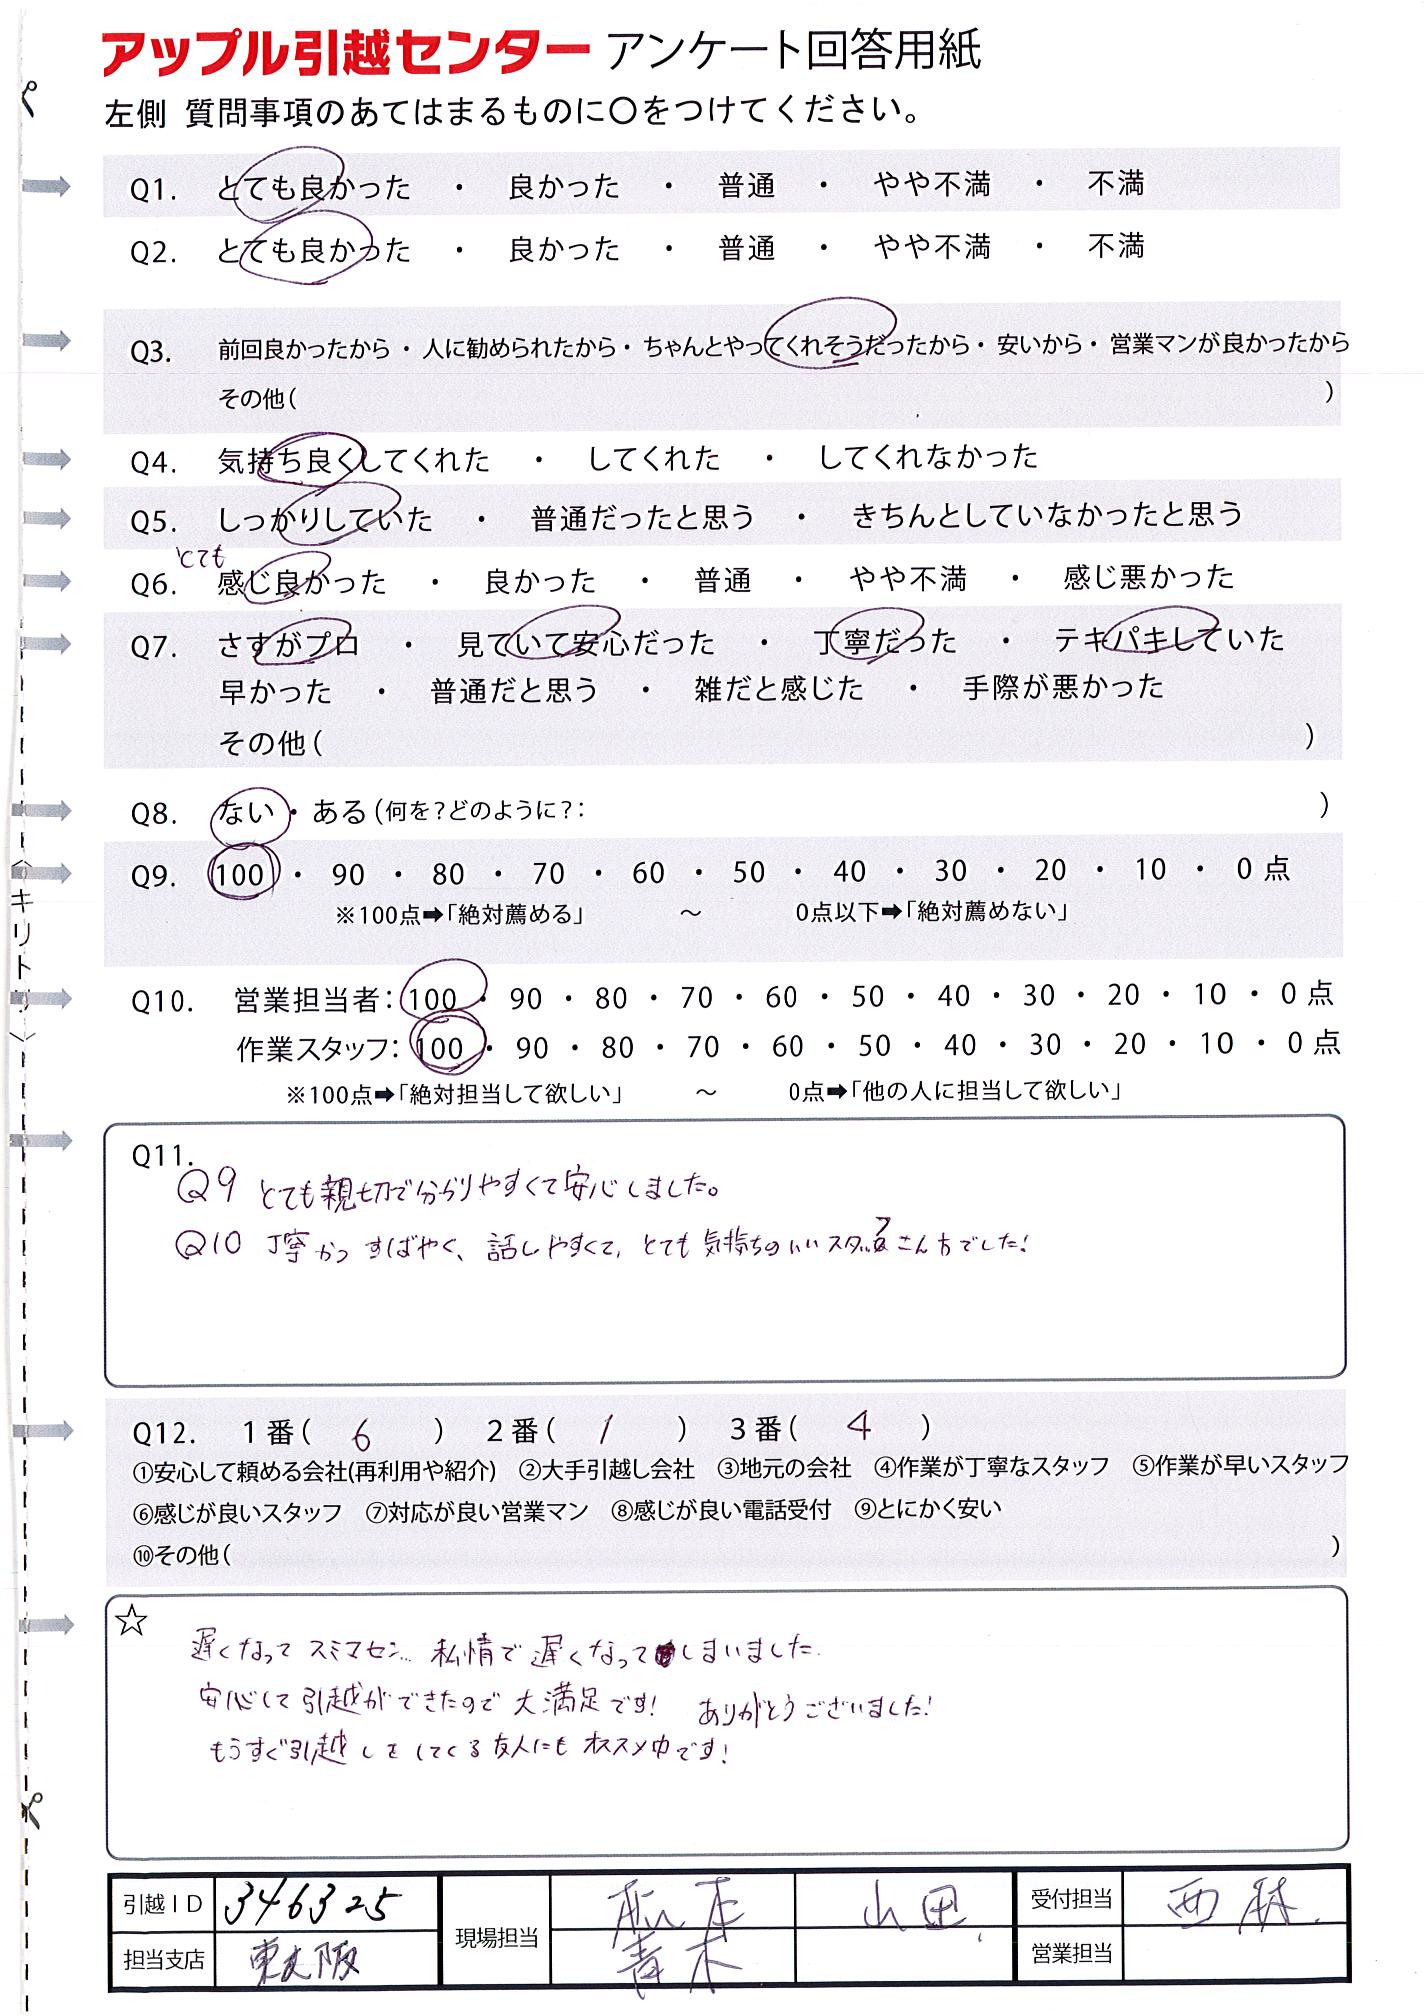 アップル引越センター アンケート回答用紙
左側 質問事項のあてはまるものに〇をつけてください。
Q1. とても良かった ・ 良かった ・ 普通 ・ やや不満 ・ 不満
Q2. とても良かった ・ 良かった ・ 普通 ・ やや不満 ・ 不満
Q3. 前回良かったから・人に勧められたから・ちゃんとやってくれそうだったから・安いから・営業マンが良かったから
その他( )
Q4. 気持ち良くしてくれた ・ してくれた ・ してくれなかった
Q5. しっかりしていた ・ 普通だったと思う ・ きちんとしていなかったと思う
とても
Q6. 感じ良かった ・ 良かった ・ 普通 ・ やや不満 ・ 感じ悪かった
Q7. さすがプロ ・ 見ていて安心だった ・ 丁寧だった ・ テキパキしていた
早かった ・ 普通だと思う ・ 雑だと感じた ・ 手際が悪かった
その他( )
Q8. ない・ある(何を?どのように?: )
Q9. 100 ・ 90 ・ 80 ・ 70 ・ 60 ・ 50 ・ 40 ・ 30 ・ 20 ・ 10 ・ 0 点
※100点➡「絶対薦める」 ～ 0点以下➡「絶対薦めない」
〈キリトリ〉
Q10. 営業担当者: 100 ・ 90 ・ 80 ・ 70 ・ 60 ・ 50 ・ 40 ・ 30 ・ 20 ・ 10 ・ 0 点
作業スタッフ: 100 ・ 90 ・ 80 ・ 70 ・ 60 ・ 50 ・ 40 ・ 30 ・ 20 ・ 10 ・ 0 点
※100点➡「絶対担当して欲しい」 ～ 0点➡「他の人に担当して欲しい」
Q11.
Q9 とても親切で分かりやすくて安心しました。
Q10 丁寧かつすばやく、話しやすくて、とても気持ちのいいスタッフさん方でした!
Q12. 1番( 6 ) 2番( 1 ) 3番( 4 )
①安心して頼める会社(再利用や紹介) ②大手引越し会社 ③地元の会社 ④作業が丁寧なスタッフ ⑤作業が早いスタッフ
⑥感じが良いスタッフ ⑦対応が良い営業マン ⑧感じが良い電話受付 ⑨とにかく安い
⑩その他( )
☆
遅くなってスミマセン… 私情で遅くなってしまいました.
安心して引越ができたので大満足です! ありがとうございました!
もうすぐ引越しをしてくる友人にもオススメ中です!
引越ID 346325 現場担当 松本 山田 受付担当 西林
担当支店 東大阪 青木 営業担当